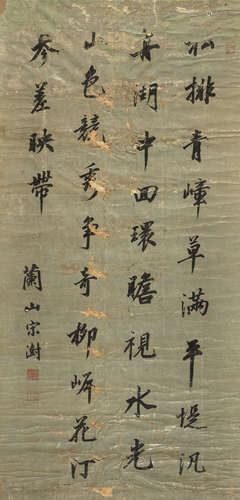 山排青嶂草滿平堤汎
舟湖中回環瞻視水光
山色競秀爭奇柳岸花汀
參差映帶
蘭山宗澍